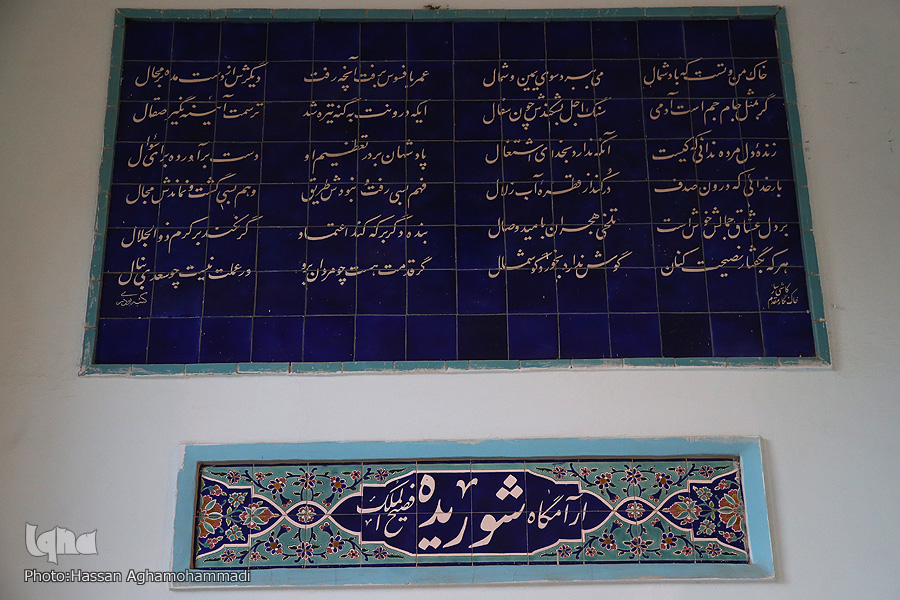 خاک من و تست که باد شمال می ببرد سوی یمین و شمال عمر بافسوس برفت آنچه رفت دیگرش از دست مده بر محال
گر مثل جام جم است آدمی سنگ اجل بشکندش چون سفال ایکه درونت به گنه تیره شد ترسمت آئینه نگیرد صقال
زنده دل مرده ندانی که کیست آنکه ندارد بخدای اشتغال پادشهان بر در تعظیم او دست برآورده برای سؤال
بارخدائی که درون صدف در کند از قطره آب زلال فهم بسی رفت و نبودش طریق وهم بسی گشت و نماندش مجال
بر دل عشاق جمالش خوش است تلخی هجران بامید وصال بنده دگر بر که کند اعتماد گر نکند بر کرم ذوالجلال
هر که بگفتار نصیحت کنان گوش ندارد بخورد گوشمال گر قدمت هست چو مردان برو ور عملت نیست چو سعدی بنال
کاشی ساز
خاک نگار مقدم
آرامگاه شوریده فصیح الملک
iqna
Photo:Hassan Aghamohammadi